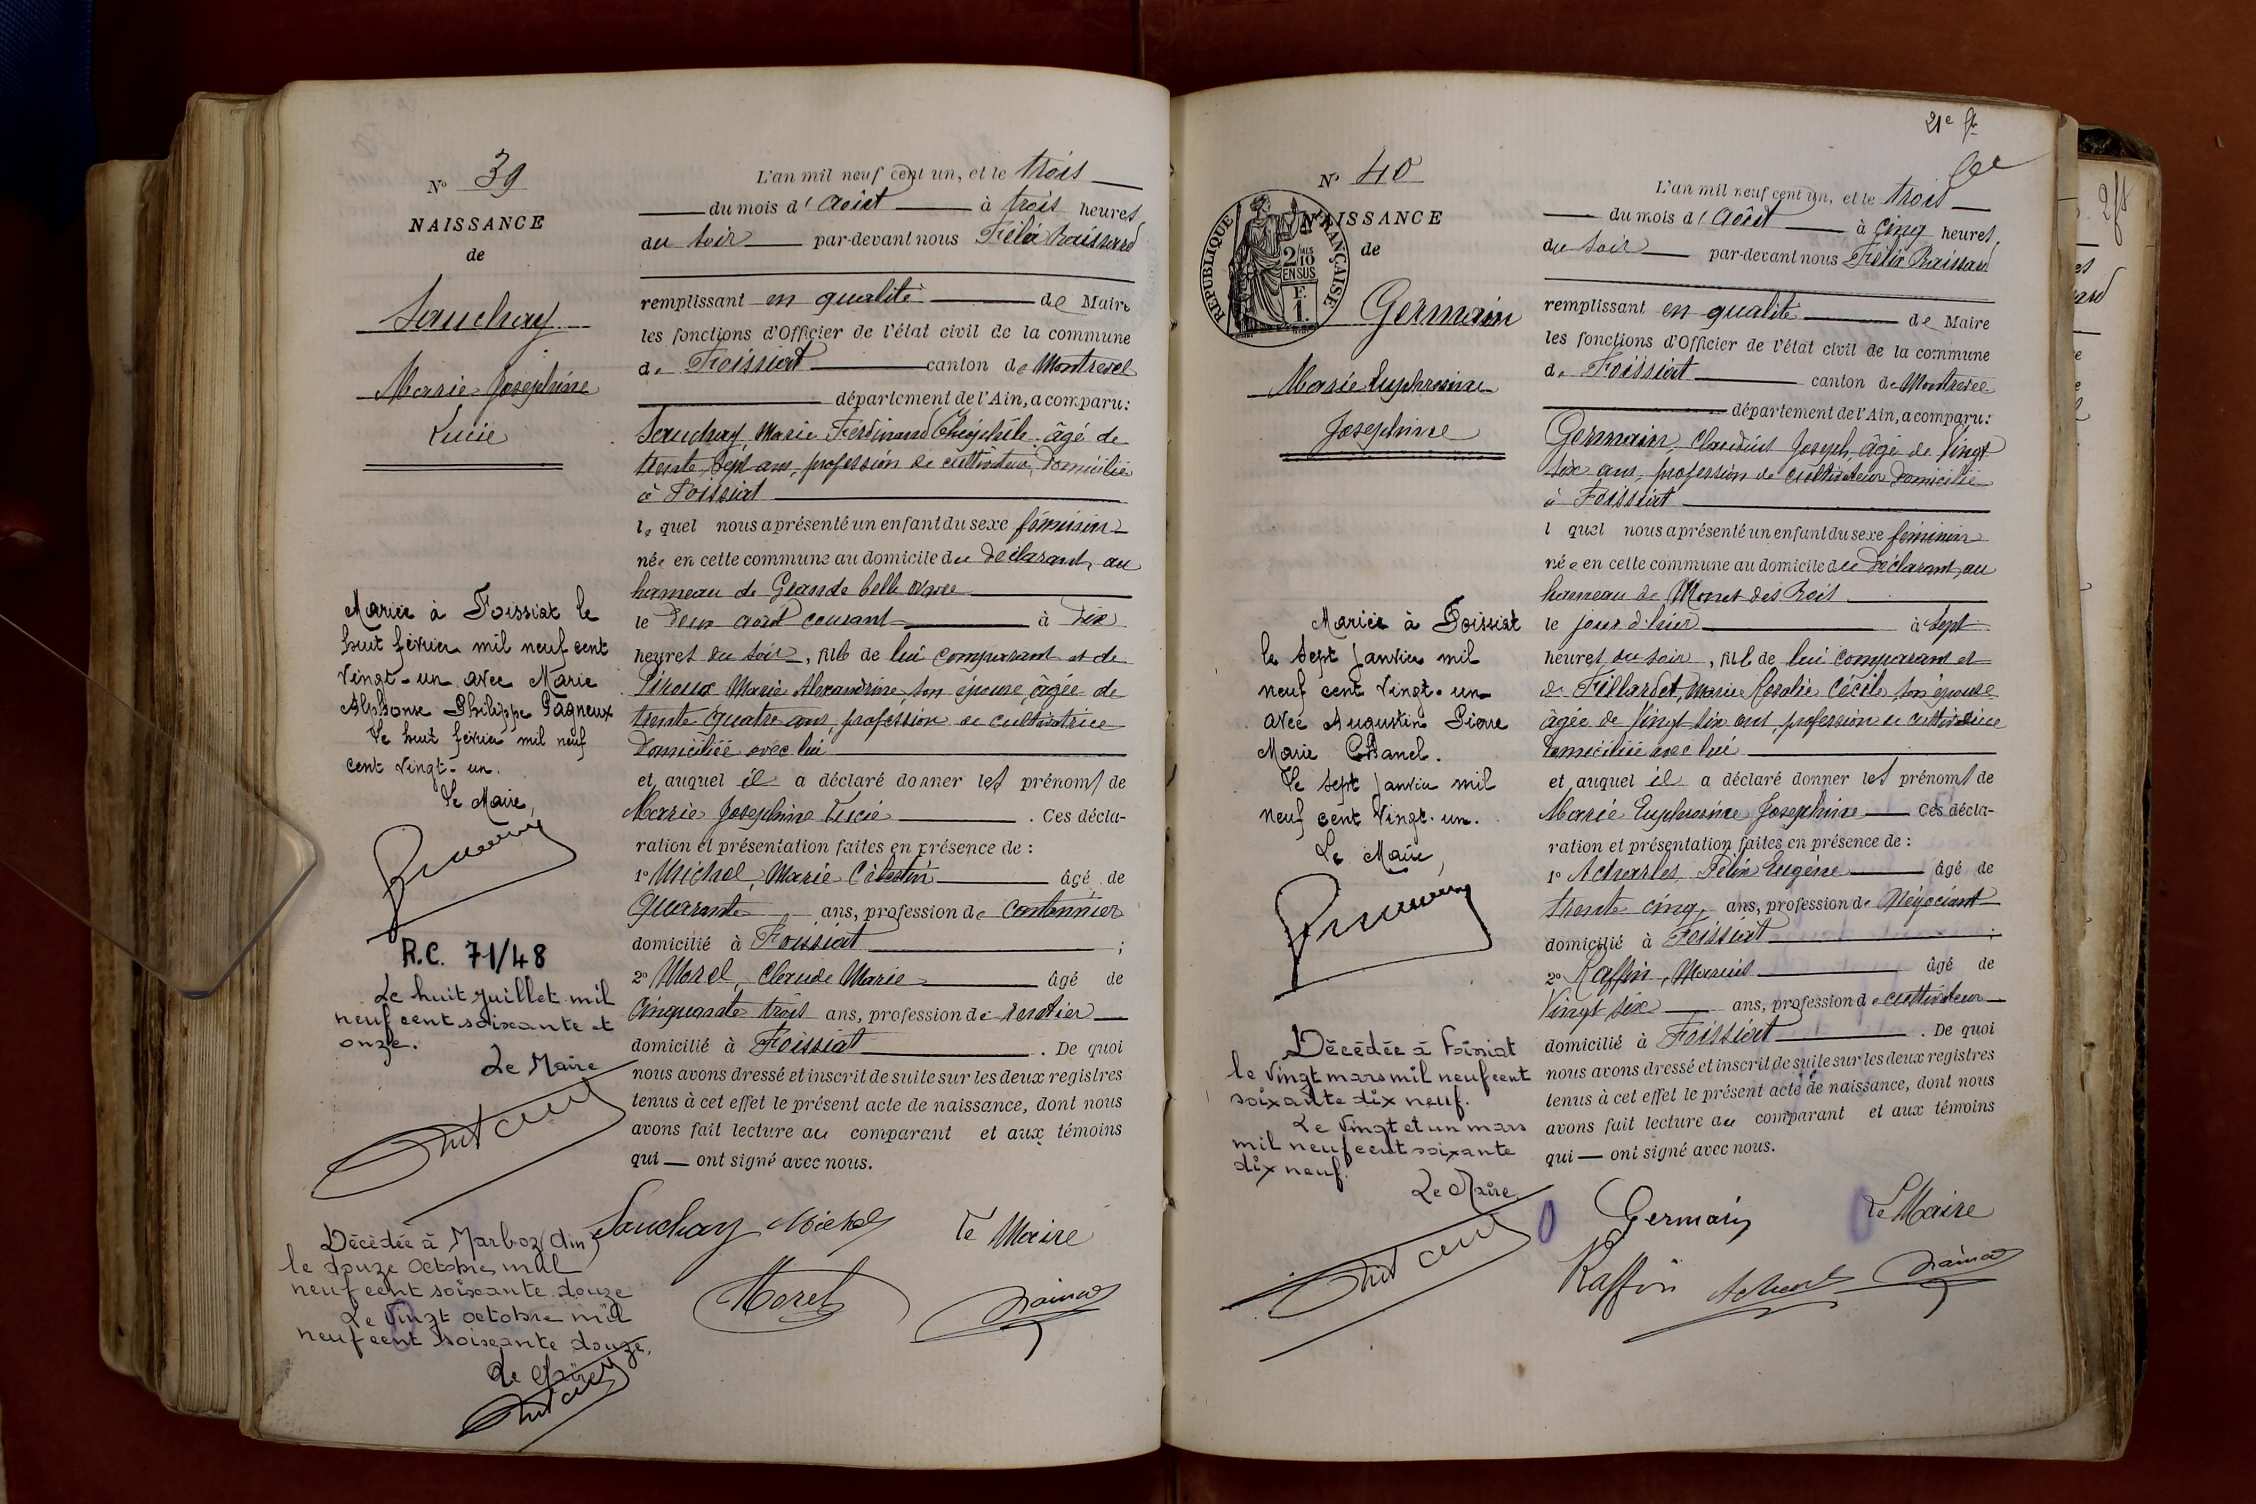 N° 39
NAISSANCE
de
Sauchay
Marie Josephine
Lucie
Mariée à Foissiat le
huit février mil neuf cent
vingt-un avec Marie
Alphonse Philippe Pagneux
Le huit février mil neuf
cent vingt-un.
Le Maire,
R.C. 71/48
Le huit juillet mil
neuf cent soixante et
onze.
Le Maire
Décédée à Marboz (Ain)
le douze octobre mil
neuf cent soixante douze
Le vingt octobre mil
neuf cent soixante douze.
Le Maire
L'an mil neuf cent un, et le trois
du mois d'août à trois heures
du soir par-devant nous Félix
remplissant en qualité de Maire
les fonctions d'Officier de l'état civil de la commune
de Foissiat canton de Montrevel
département de l'Ain, a comparu:
Sauchay, Marie Ferdinand Théophile âgé de
trente sept ans, profession de cultivateur, domicilié
à Foissiat
lequel nous a présenté un enfant du sexe féminin
née en cette commune au domicile du déclarant, au
hameau de Grande belle
le deux août courant à dix
heures du soir, fille de lui comparant et de
Piroux Marie Alexandrine son épouse, âgée de
trente quatre ans, profession de cultivatrice
domiciliée avec lui
et auquel il a déclaré donner les prénoms de
Marie Josephine Lucie. Ces décla-
ration et présentation faites en présence de :
1° Michel, Marie Célestin âgé de
quarante ans, profession de cantonnier
domicilié à Foissiat ;
2° Morel, Claude Marie âgé de
cinquante trois ans, profession de rentier
domicilié à Foissiat. De quoi
nous avons dressé et inscrit de suite sur les deux registres
tenus à cet effet le présent acte de naissance, dont nous
avons fait lecture au comparant et aux témoins
qui ont signé avec nous.
Sauchay Michel Le Maire
Morel
21e
N° 40
RÉPUBLIQUE FRANÇAISE
2/10 EN SUS
NAISSANCE
de
Germain
Marie Euphrosine
Josephine
Mariée à Foissiat
le sept janvier mil
neuf cent vingt-un
avec Augustin Pierre
Marie Chanel.
Le sept janvier mil
neuf cent vingt-un.
Le Maire,
Décédée à Foissiat
le vingt mars mil neuf cent
soixante dix neuf.
Le vingt et un mars
mil neuf cent soixante
dix neuf.
Le Maire
L'an mil neuf cent un, et le trois
du mois d'août à cinq heures
du soir par-devant nous Félix
remplissant en qualité de Maire
les fonctions d'Officier de l'état civil de la commune
de Foissiat canton de Montrevel
département de l'Ain, a comparu:
Germain, Claudius Joseph, âgé de vingt
six ans, profession de cultivateur domicilié
à Foissiat
l quel nous a présenté un enfant du sexe féminin
née en cette commune au domicile du déclarant, au
hameau de
le jour d'hier à sept
heures du soir, fille de lui comparant et
de Fillardet, Marie Rosalie Cécile son épouse
âgée de vingt six ans, profession de cultivatrice
domiciliée avec lui
et auquel il a déclaré donner les prénoms de
Marie Euphrosine Josephine Ces décla-
ration et présentation faites en présence de :
1° Félix Eugène âgé de
trente cinq ans, profession de négociant
domicilié à Foissiat ;
2° Raffin, Marius âgé de
vingt six ans, profession de cultivateur
domicilié à Foissiat. De quoi
nous avons dressé et inscrit de suite sur les deux registres
tenus à cet effet le présent acte de naissance, dont nous
avons fait lecture au comparant et aux témoins
qui ont signé avec nous.
Germain Le Maire
Raffin